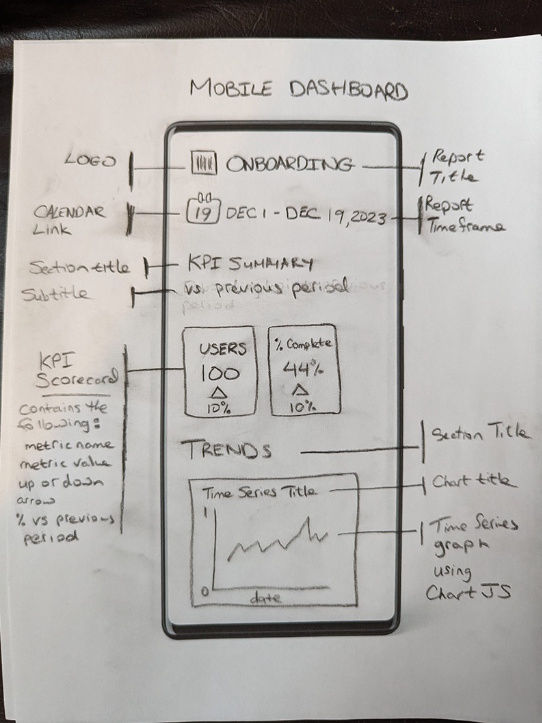 MOBILE DASHBOARD
LOGO
ONBOARDING
Report
Title
CALENDAR
Link
19
DEC 1 - DEC 19, 2023
Report
Timeframe
Section title
KPI SUMMARY
Subtitle
vs previous period
KPI
Scorecord
contains the
following:
metric name
metric value
up or down
arrow
% vs previous
period
USERS
100
10%
% Complete
44%
10%
TRENDS
Section Title
Time Series Title
Chart title
1
0
date
Time Series
graph
using
Chart JS